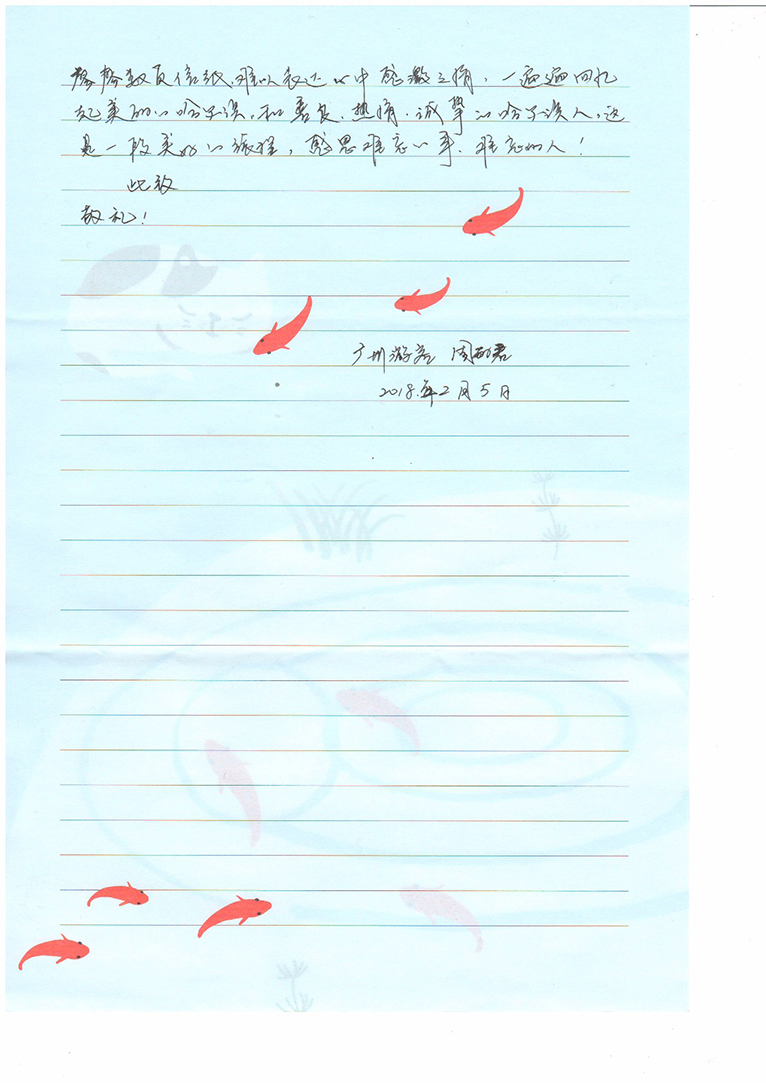 数页信纸,难以表达心中感激之情,一遍遍回忆
起美的心哈尔滨,和善良、热情、诚挚的哈尔滨人,这
是一段美好的旅程,感恩难忘的事、难忘的人!
此致
敬礼!
广州游客 周
2018年2月5日